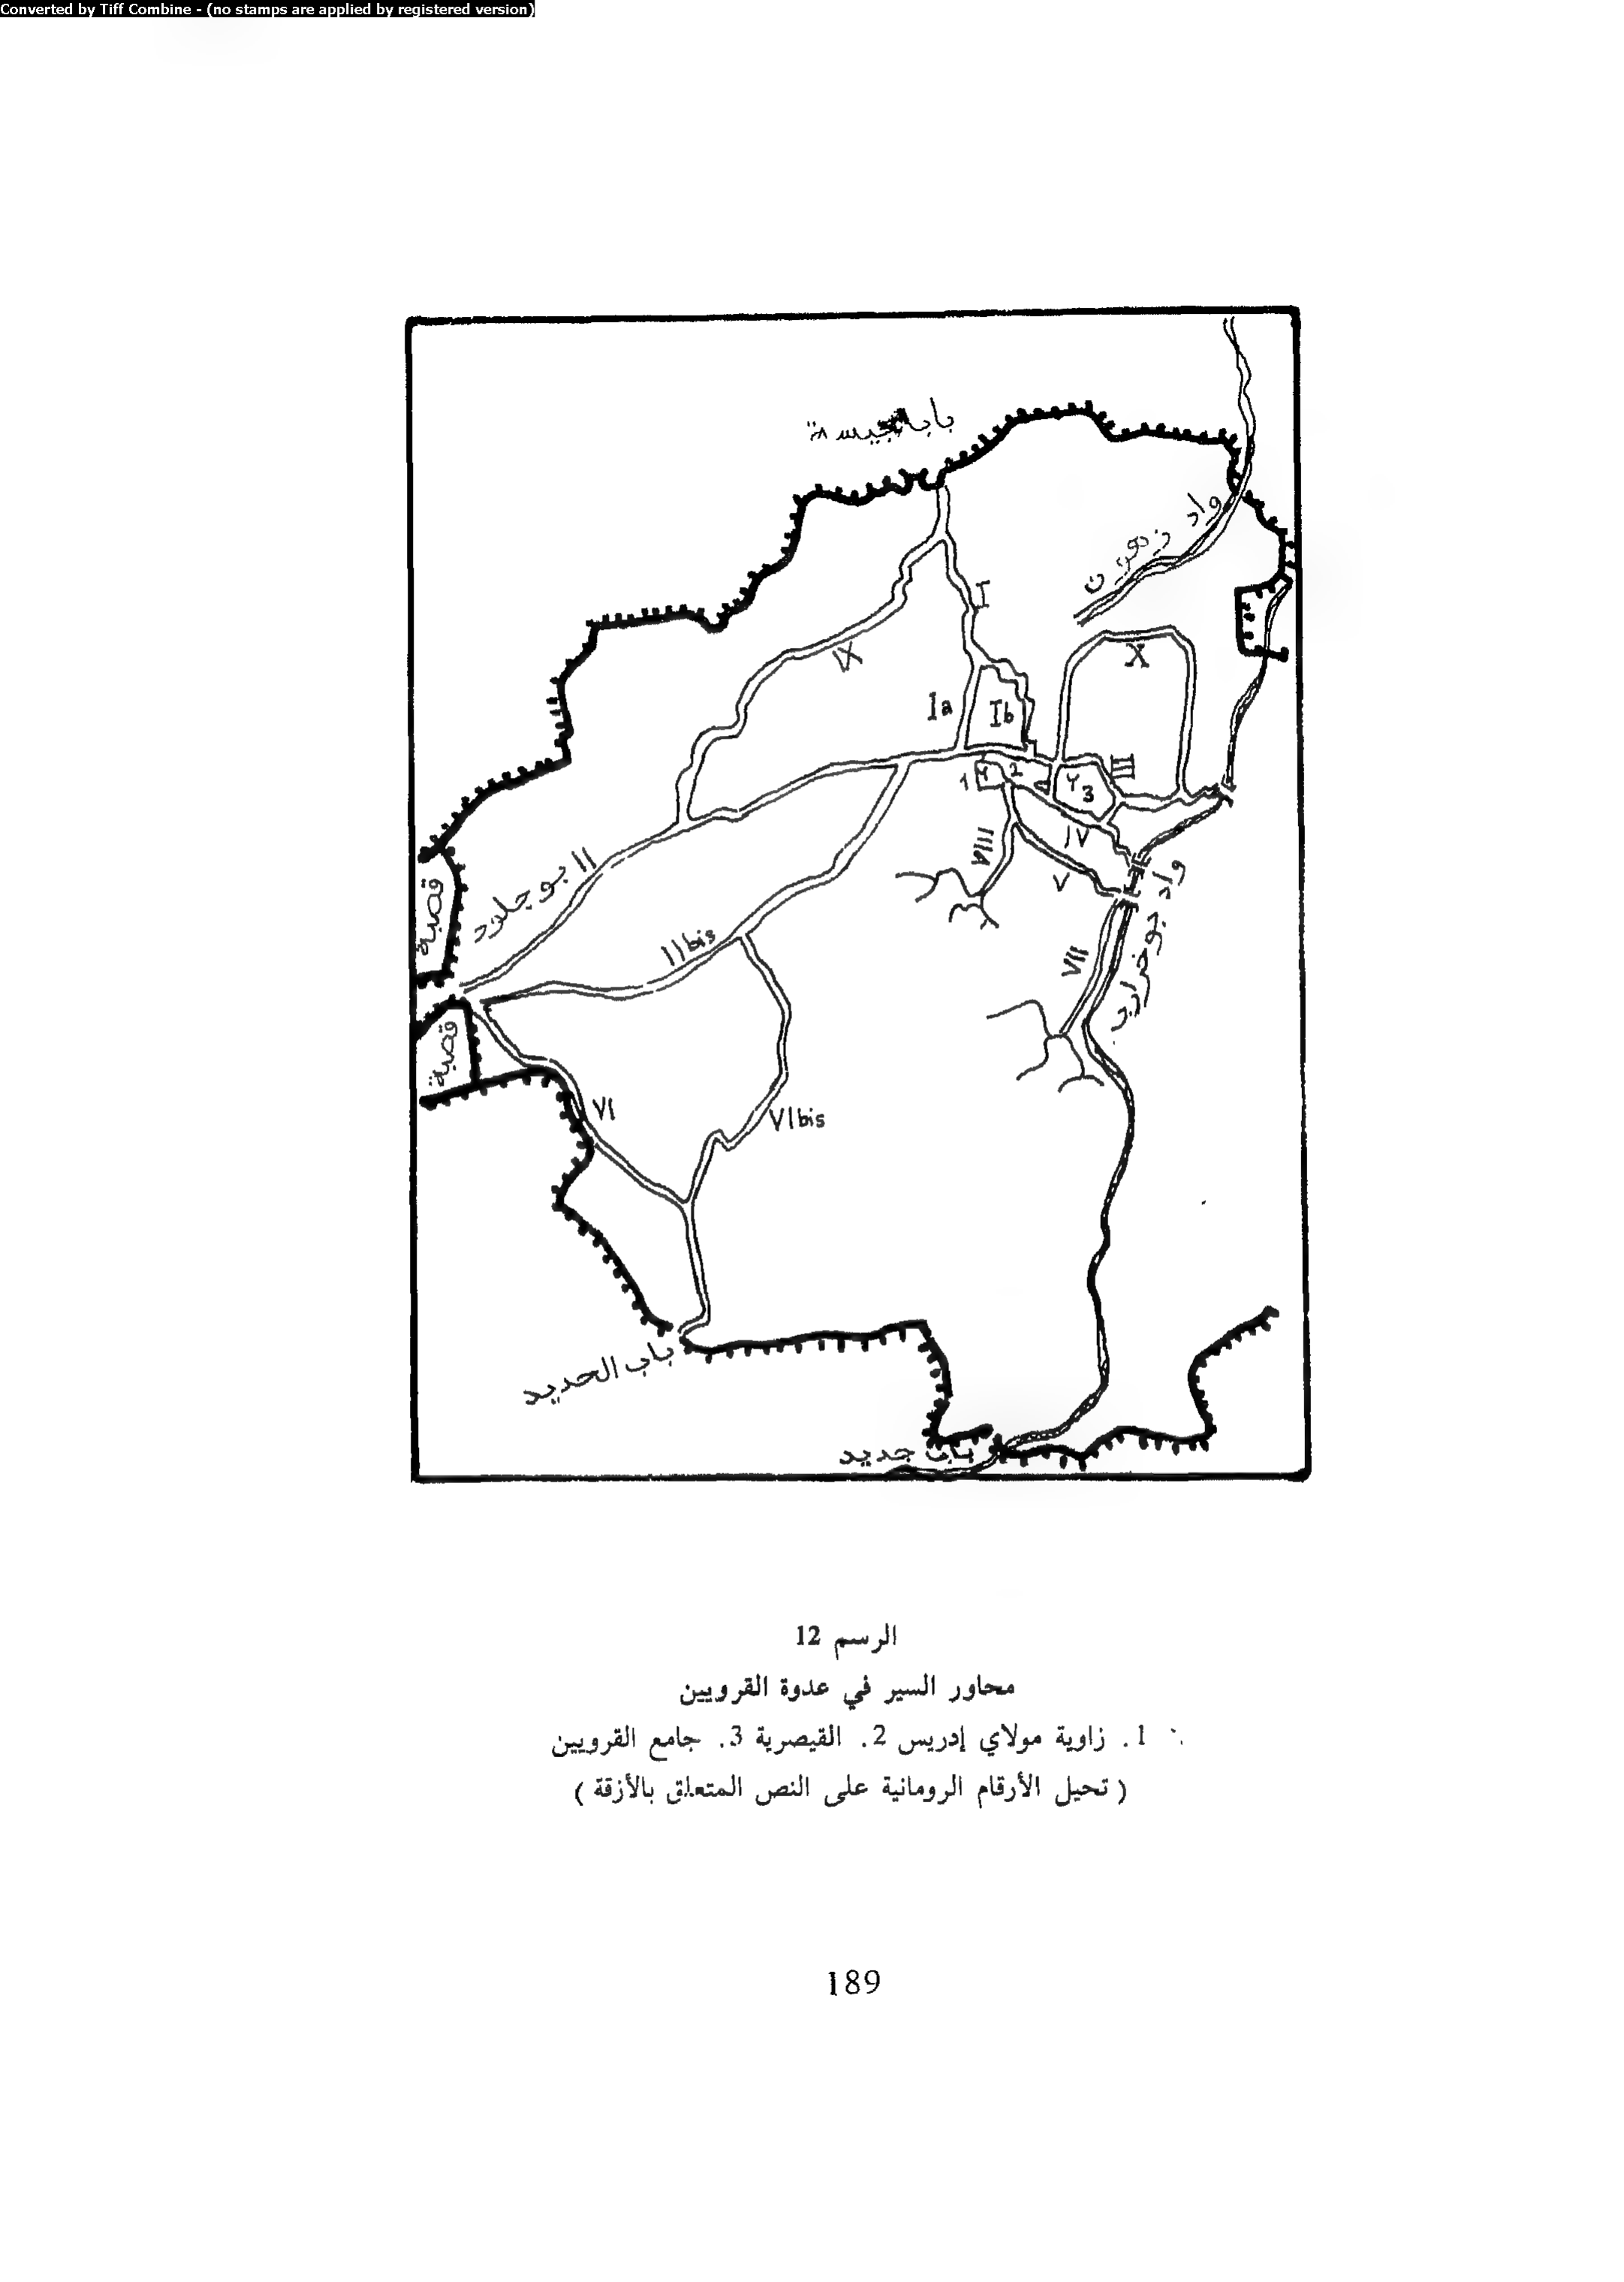 Converted by Tiff Combine - (no stamps are applied by registered version)
واد زهون
I
IX
X
Ia
Ib
III
1
2
3
IV
VIII
V
II بو جلود
قصبة
II bis
VII
واد بو خرارب
قصبة
VI
VI bis
باب الحديد
باب جديد
الرسم 12
محاور السير في عدوة القرويين
1. زاوية مولاي إدريس 2. القيصرية 3. جامع القرويين
( تحيل الأرقام الرومانية على النص المتعلق بالأزقة )
189